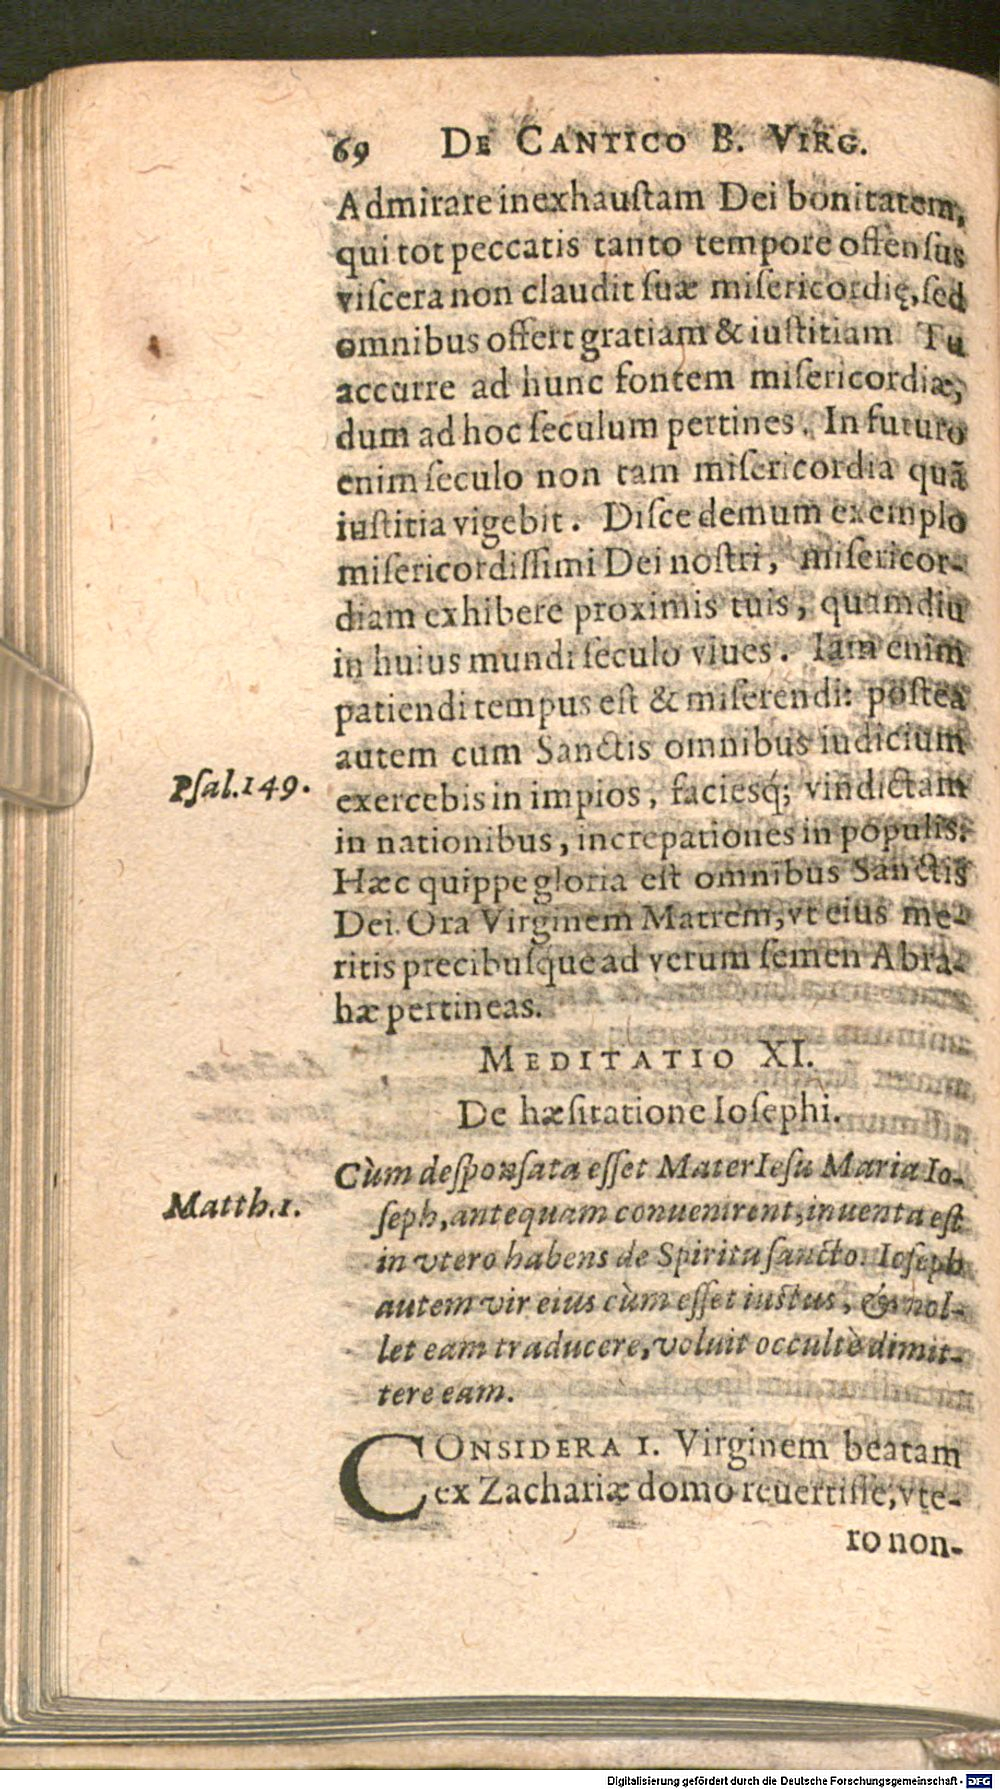 69 DE CANTICO B. VIRG.
Admirare inexhauſtam Dei bonitatem,
qui tot peccatis tanto tempore offenſus
viſcera non claudit ſuæ miſericordię, ſed
omnibus offert gratiam & iuſtitiam Tu
accurre ad hunc fontem miſericordiæ,
dum ad hoc ſeculum pertines. In futuro
enim ſeculo non tam miſericordia quã
iuſtitia vigebit. Diſce demum exemplo
miſericordiſſimi Dei noſtri, miſericor-
diam exhibere proximis tuis, quamdiu
in huius mundi ſeculo viues. Iam enim
patiendi tempus eſt & miſerendi: poſtea
autem cum Sanctis omnibus iudicium
Pſal. 149.
exercebis in impios, faciesq́; vindictam
in nationibus, increpationes in populis.
Hæc quippe gloria eſt omnibus Sanctis
Dei. Ora Virginem Matrem, vt eius me-
ritis precibuſque ad verum ſemen Abra-
hæ pertineas.
MEDITATIO XI.
De hæſitatione Ioſephi.
Cùm deſponſata eſſet Mater Ieſu Maria Io-
Matth. 1.
ſeph, antequam conuenirent, inuenta eſt
in vtero habens de Spiritu ſancto. Ioſeph
autem vir eius cùm eſſet iuſtus, & nol-
let eam traducere, voluit occultè dimit-
tere eam.
CONSIDERA 1. Virginem beatam
ex Zachariæ domo reuertiſſe, vte-
ro non-
Digitalisierung gefördert durch die Deutsche Forschungsgemeinschaft - DFG